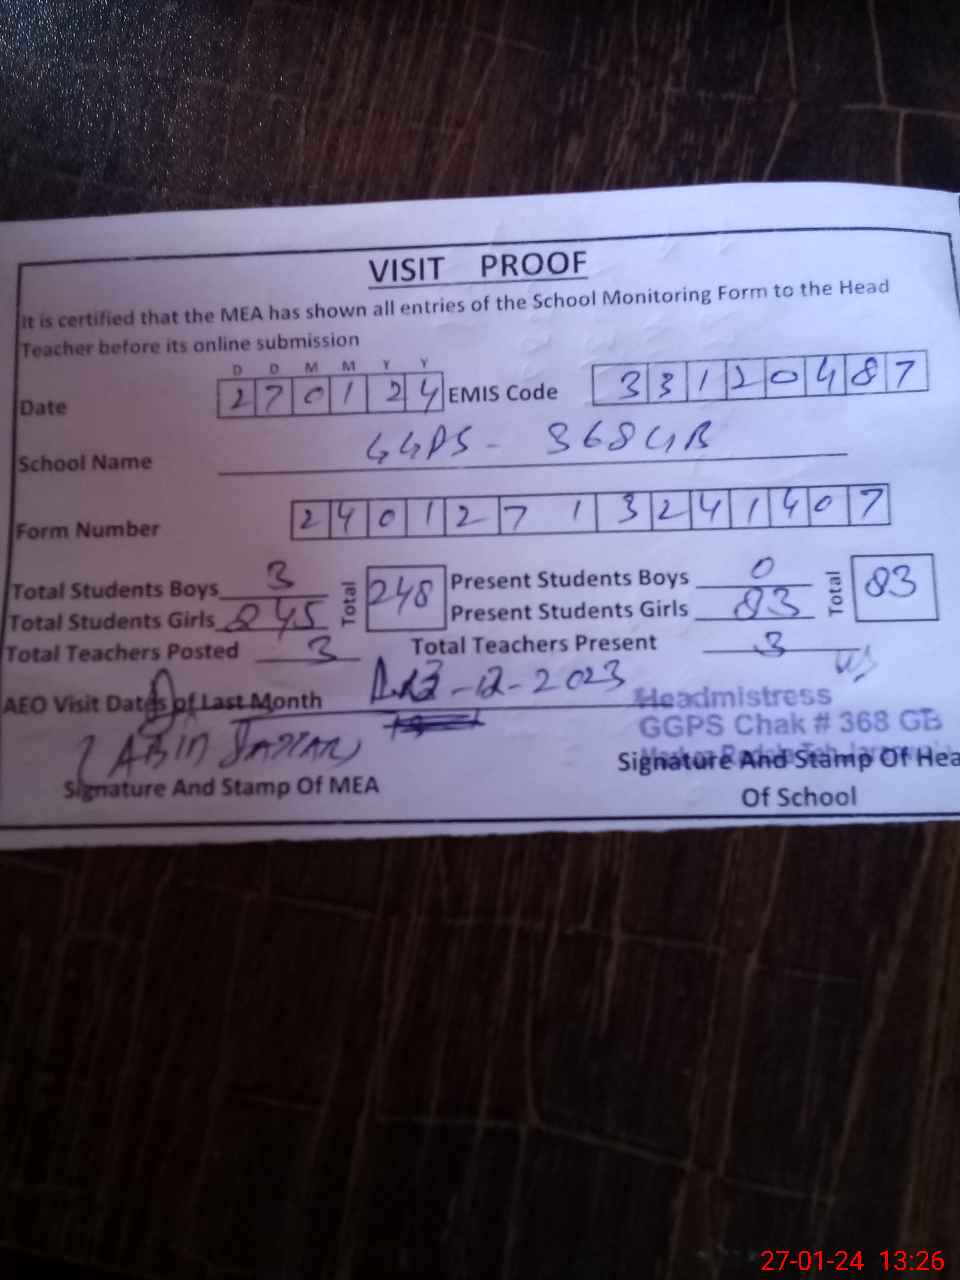 VISIT PROOF
It is certified that the MEA has shown all entries of the School Monitoring Form to the Head
Teacher before its online submission
D D M M Y Y
Date 2 7 0 1 2 4 EMIS Code 3 3 1 2 0 4 8 7
School Name GGPS - 368 GB
Form Number 2 4 0 1 2 7 1 3 2 4 1 4 0 7
Total Students Boys 3 Total 248 Present Students Boys 0 Total 83
Total Students Girls 245 Present Students Girls 83
Total Teachers Posted 3 Total Teachers Present 3
AEO Visit Dates of Last Month -12-2023
Headmistress
GGPS Chak # 368 GB
Signature And Stamp Of MEA
Signature And Stamp Of Hea
Of School
27-01-24 13:26